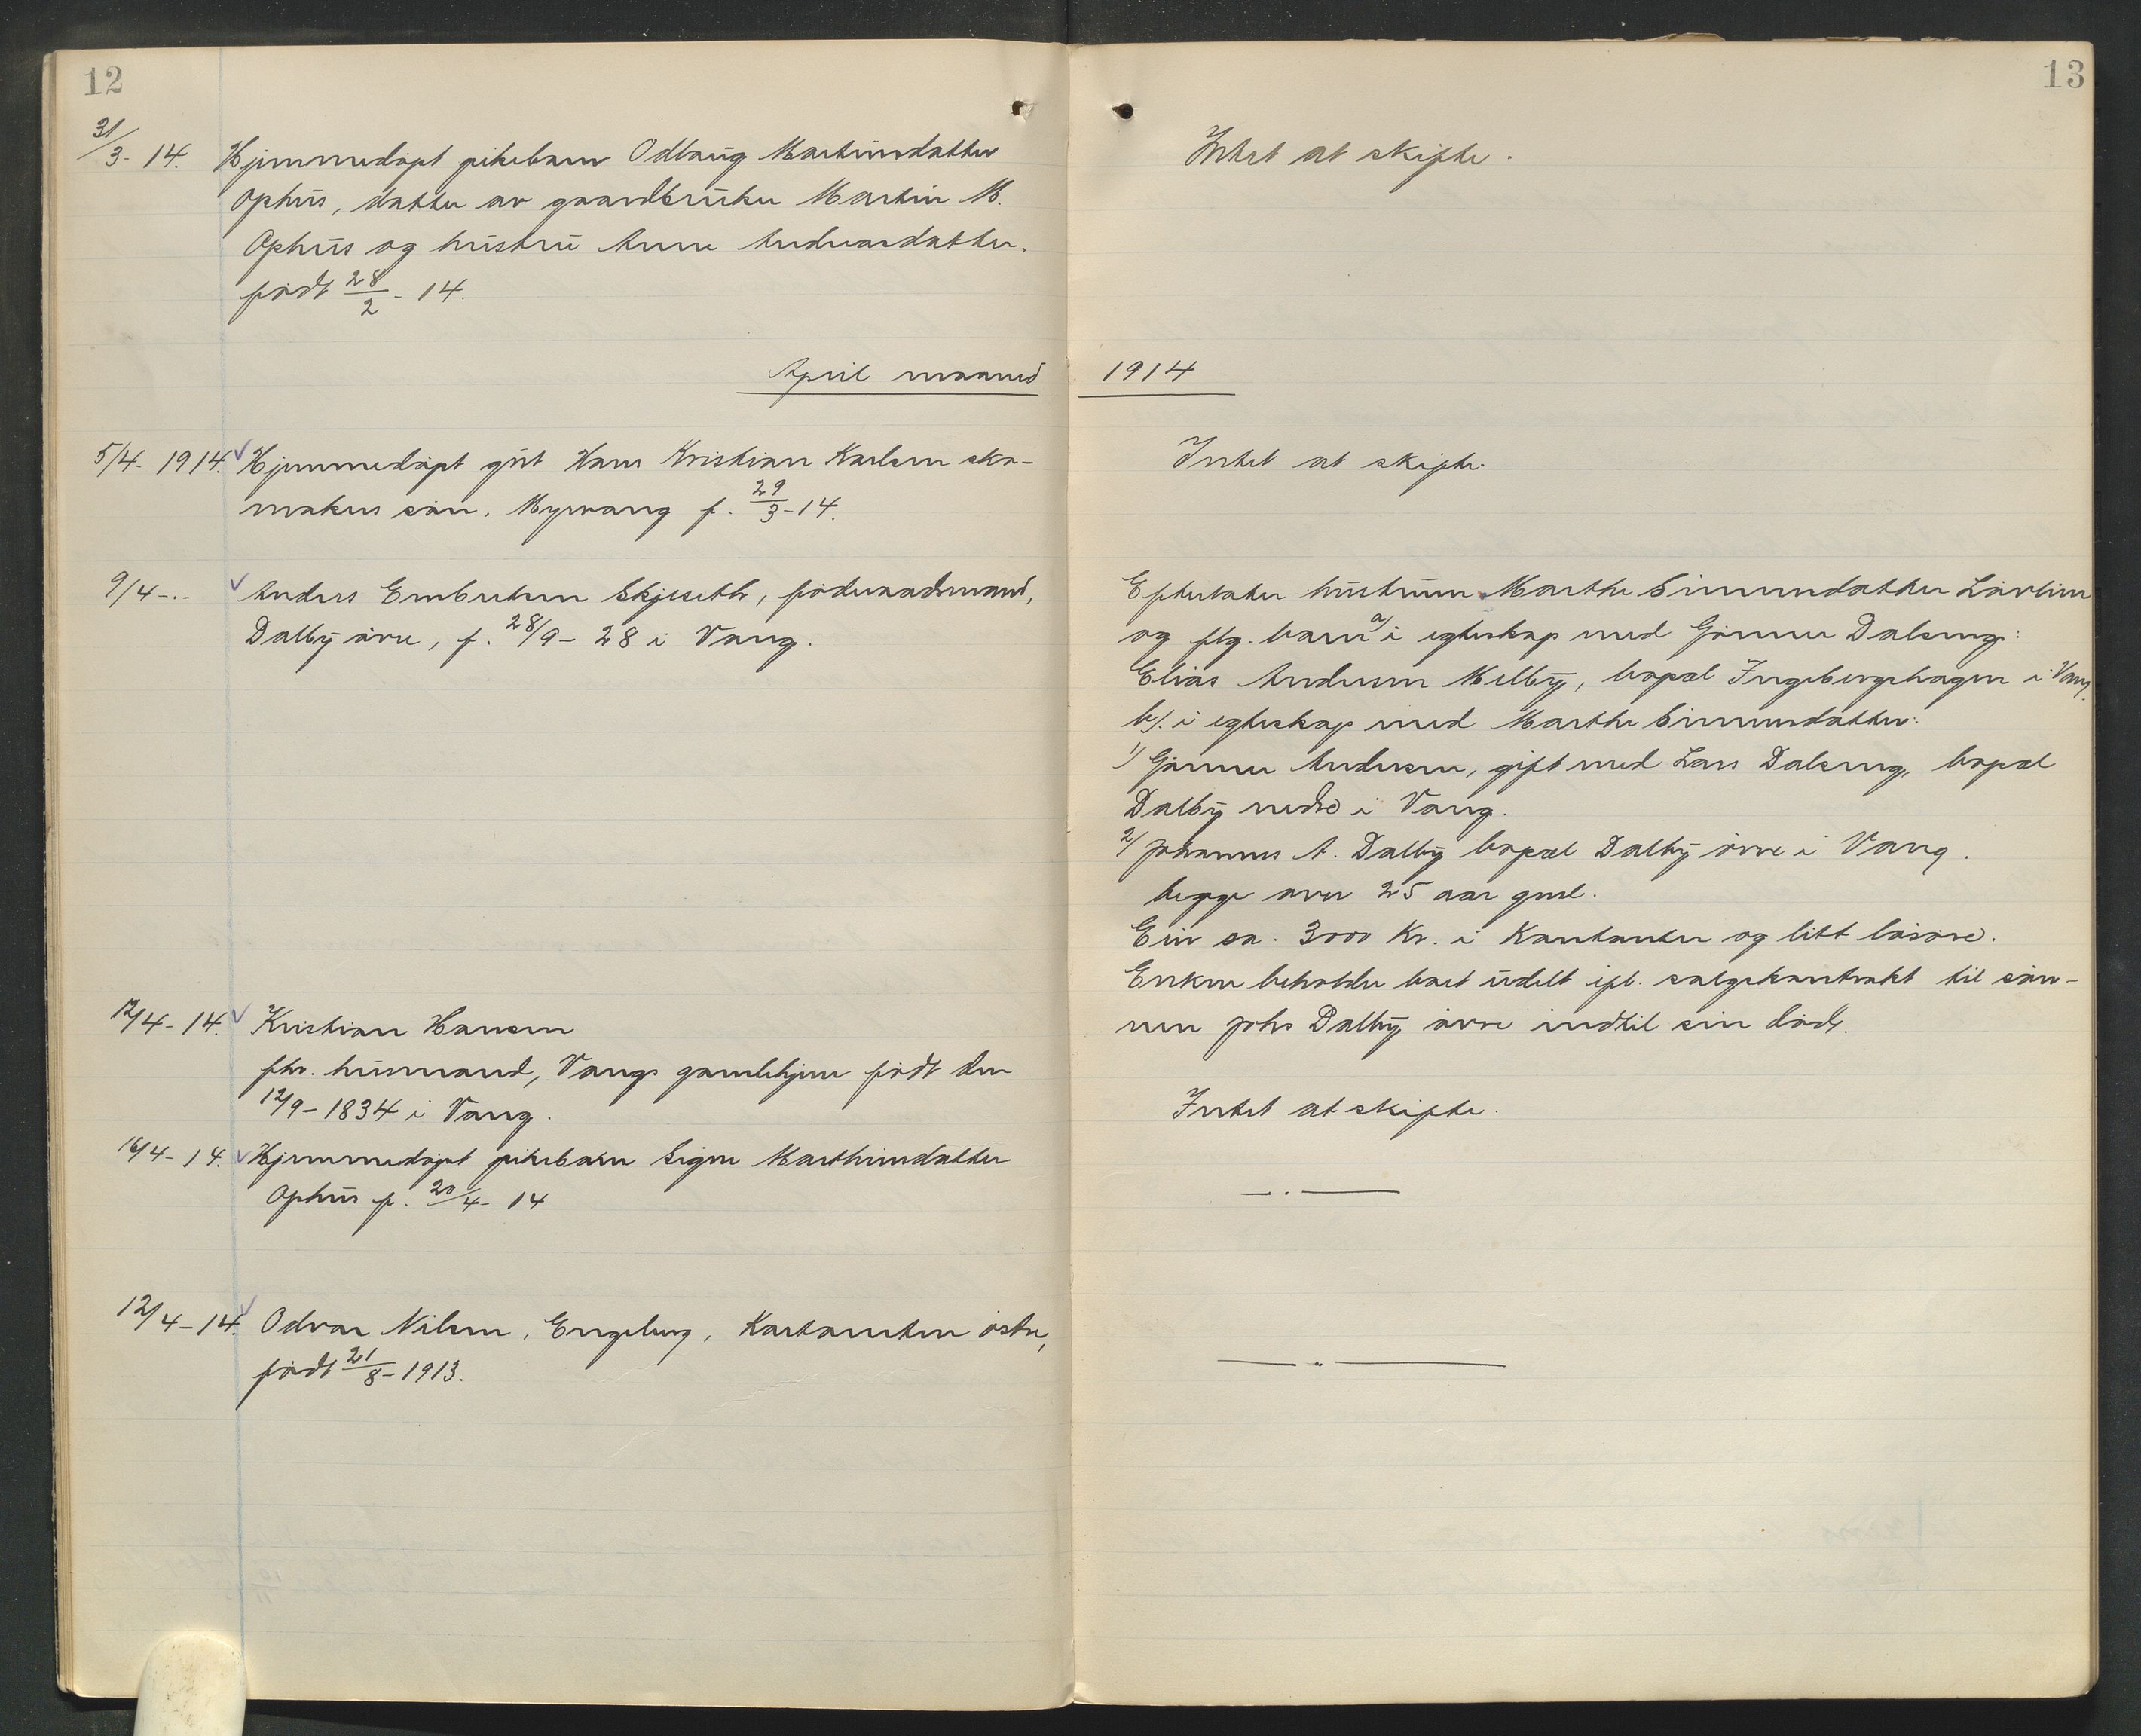 12
31/3-14. Hjemmedøpt pikebarn Odlaug Martinsdatter
Ophus, datter av gaardbruker Martin M.
Ophus og hustru Anne Andreasdatter.
født 28/2-14.
April maaned
5/4-1914. Hjemmedøpt gut Hans Kristian Karlsen sko-
makers søn, Myrvang f. 29/3-14.
9/4-"- Anders Embretsen Skjeseth, føderaadsmand,
Dalby øvre, f. 28/9-28 i Vang.
12/4-14. Kristian Hansen
fhv. husmand, Vangs gamlehjem født den
12/9-1834 i Vang.
16/4-14. Hjemmedøpt pikebarn Signe Marthinsdatter
Ophus f. 20/4-14
12/4-14. Odvar Nilsen, Engeberg, Kartomten østre,
født 21/8-1913.
13
Intet at skifte.
1914
Intet at skifte.
Efterlater hustruen Marthe Simensdatter Løvlien
og flg. barn a/ i egteskap med Gønner Dalseng:
Elias Andersen Melby, bopæl Ingebergshagen i Vang.
b/. i egteskap med Marthe Simensdatter:
1/ Gønner Andersen, gift med Lars Dalseng, bopæl
Dalby nedre i Vang.
2/ Johannes A. Dalby bopæl Dalby øvre i Vang.
begge over 25 aar gml.
Eier ca. 3000 Kr. i Kontanter og litt løsøre.
Enken beholder boet udelt ifl. salgskontrakt til søn-
nen Johs Dalby øvre indtil sin død.
Intet at skifte.
—.—
—"—